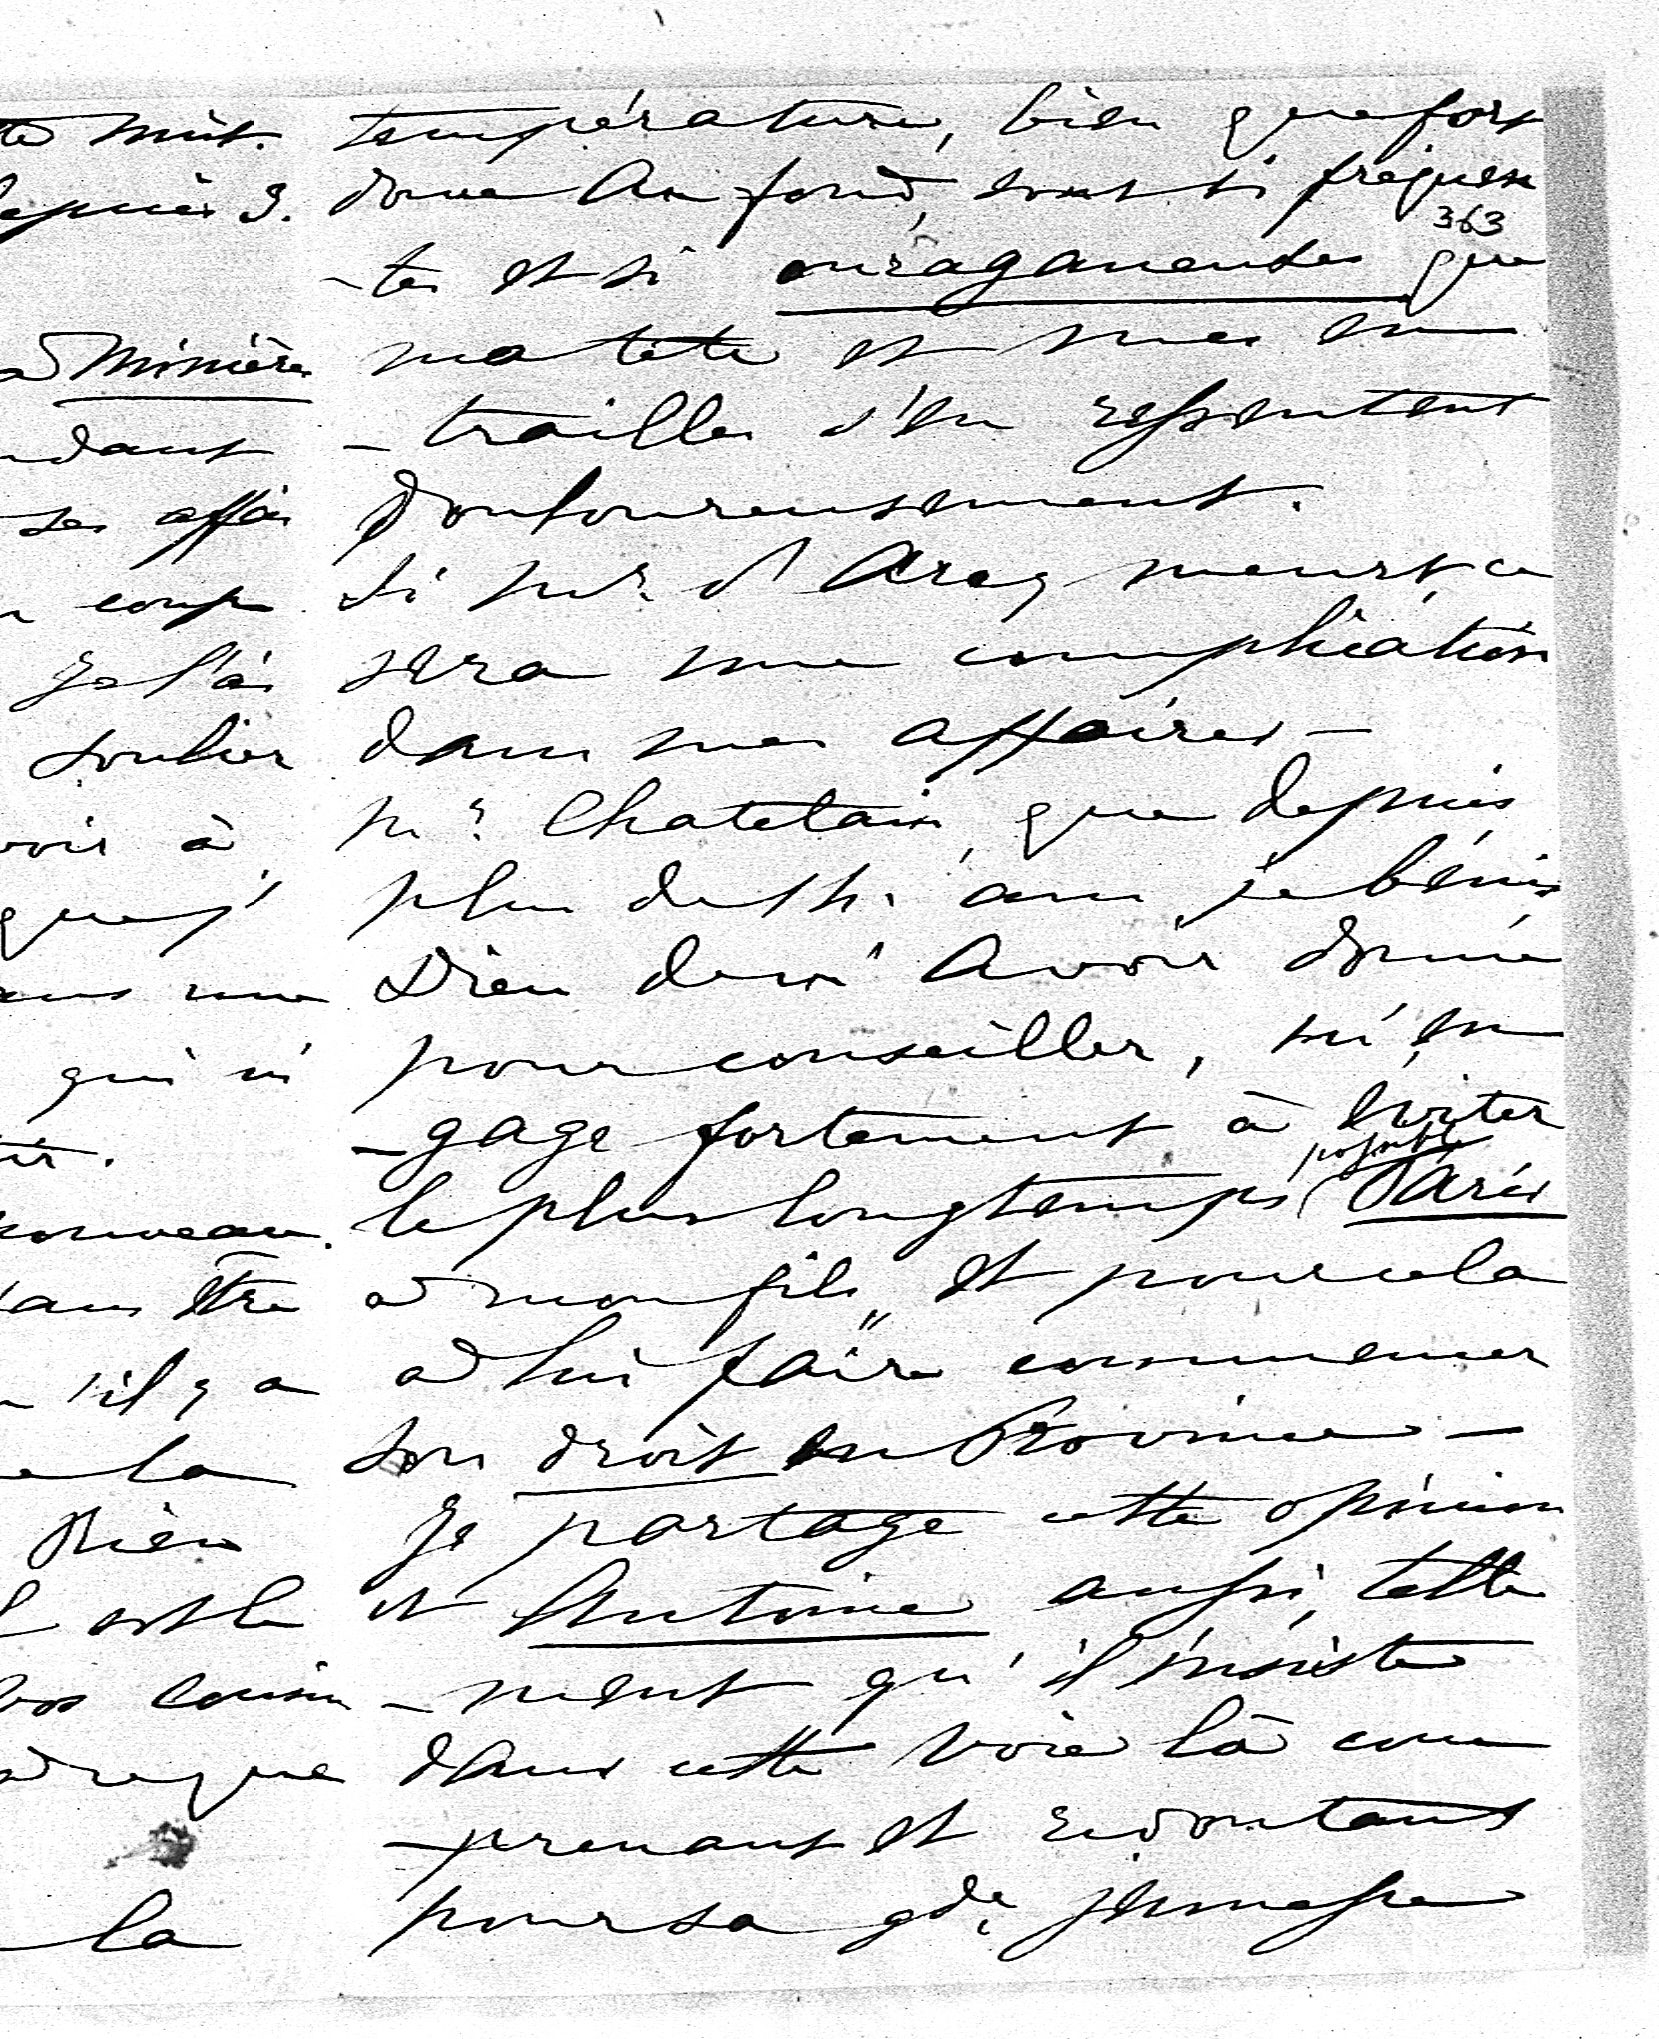 température, bien que fort
douce au fond, sont si fréquen
363
-tes et si ouraganeuses que
ma tête et mes en
-trailles s'en ressentent
Douloureusement.
Si Mr. d'Arcq meurt, ce
sera une complication
dans mes affaires -
Mr. Chatelain, que depuis
plus de ans, je bénis
Dieu de m'avoir donné
pour conseiller, m'en
-gage fortement à éviter
possible
le plus longtemps Paris
à mon fils, et pour cela
à lui faire commencer
son droit en Province -
Je partage cette opinion
et Antoine aussi, telle
-ment qu'il insiste
dans cette voie là com
-prenant et redoutant
pour sa gde. jeunesse
te nuit.
depuis 3.
à Minières
ndant
ses affai
coup
Je l'ai
soulier
voir à
que j'
une
qui m'
nouveau.
être
s'il y a
la
Rien
est le
vos cousin
que
la